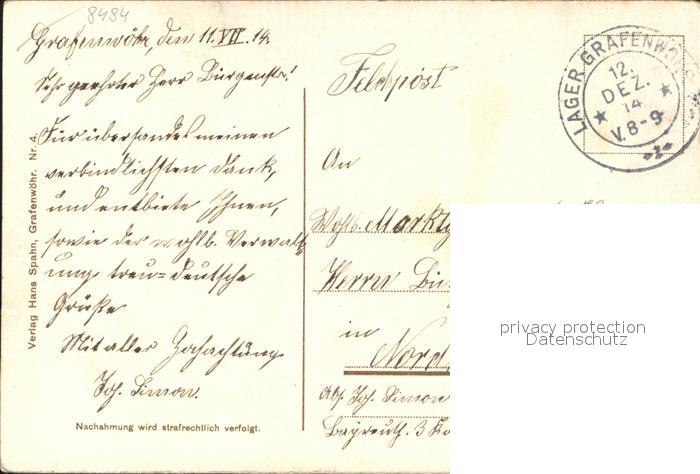 8484
Grafenwöhr, den 11.VII.14.
Sehr geehrter Herr Bürgermstr.!
Für übersandtes meinen
verbindlichsten Dank,
und entbiete Ihnen,
sowie der wohlb. Verwalt=
ung treu=deutsche
Grüße
Mit aller Hochachtung
Joh. Simon.
Nachahmung wird strafrechtlich verfolgt.
Verlag Hans Spahn, Grafenwöhr. Nr. 4.
Feldpost
LAGER GRAFENWÖHR
12.
DEZ.
14
V.8-9
2
An
Wohlb. Markt
Herrn Bür
in
Nord
Abs. Joh. Simon
Bayreuth. 3 Ko
privacy protection
Datenschutz